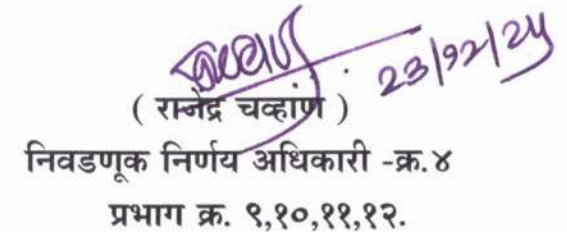 चव्हाण २३/१२/२५
( राजेंद्र चव्हाण )
निवडणूक निर्णय अधिकारी -क्र.४
प्रभाग क्र. ९,१०,११,१२.